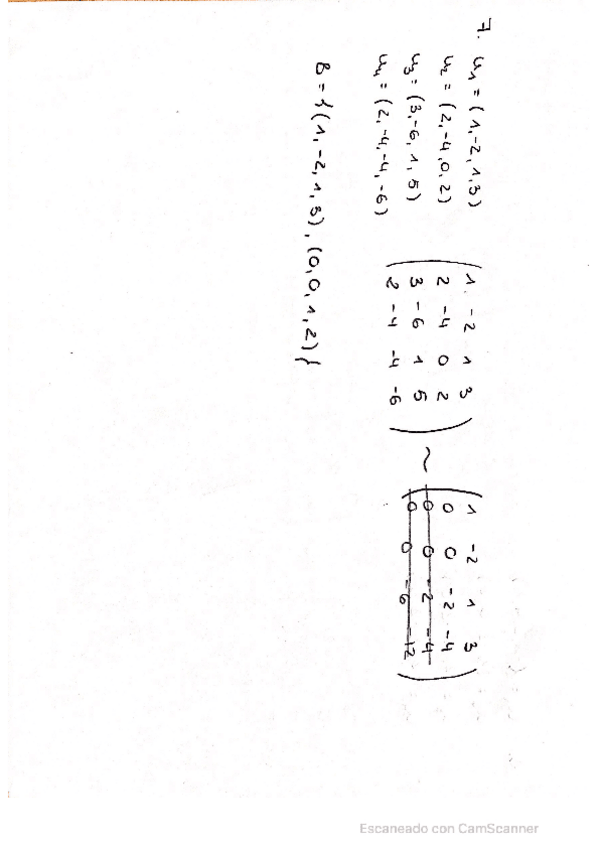 7. u₁ = (1,-2,1,3)
u₂ = (2,-4,0,2)
u₃ = (3,-6,1,5)
u₄ = (2,-4,-4,-6)
( 1 -2 1 3
2 -4 0 2
3 -6 1 5
2 -4 -4 -6 )
~
( 1 -2 1 3
0 0 -2 -4
0 0 -2 -4
0 0 -6 -12 )
B = {(1,-2,1,3), (0,0,1,2)}
Escaneado con CamScanner